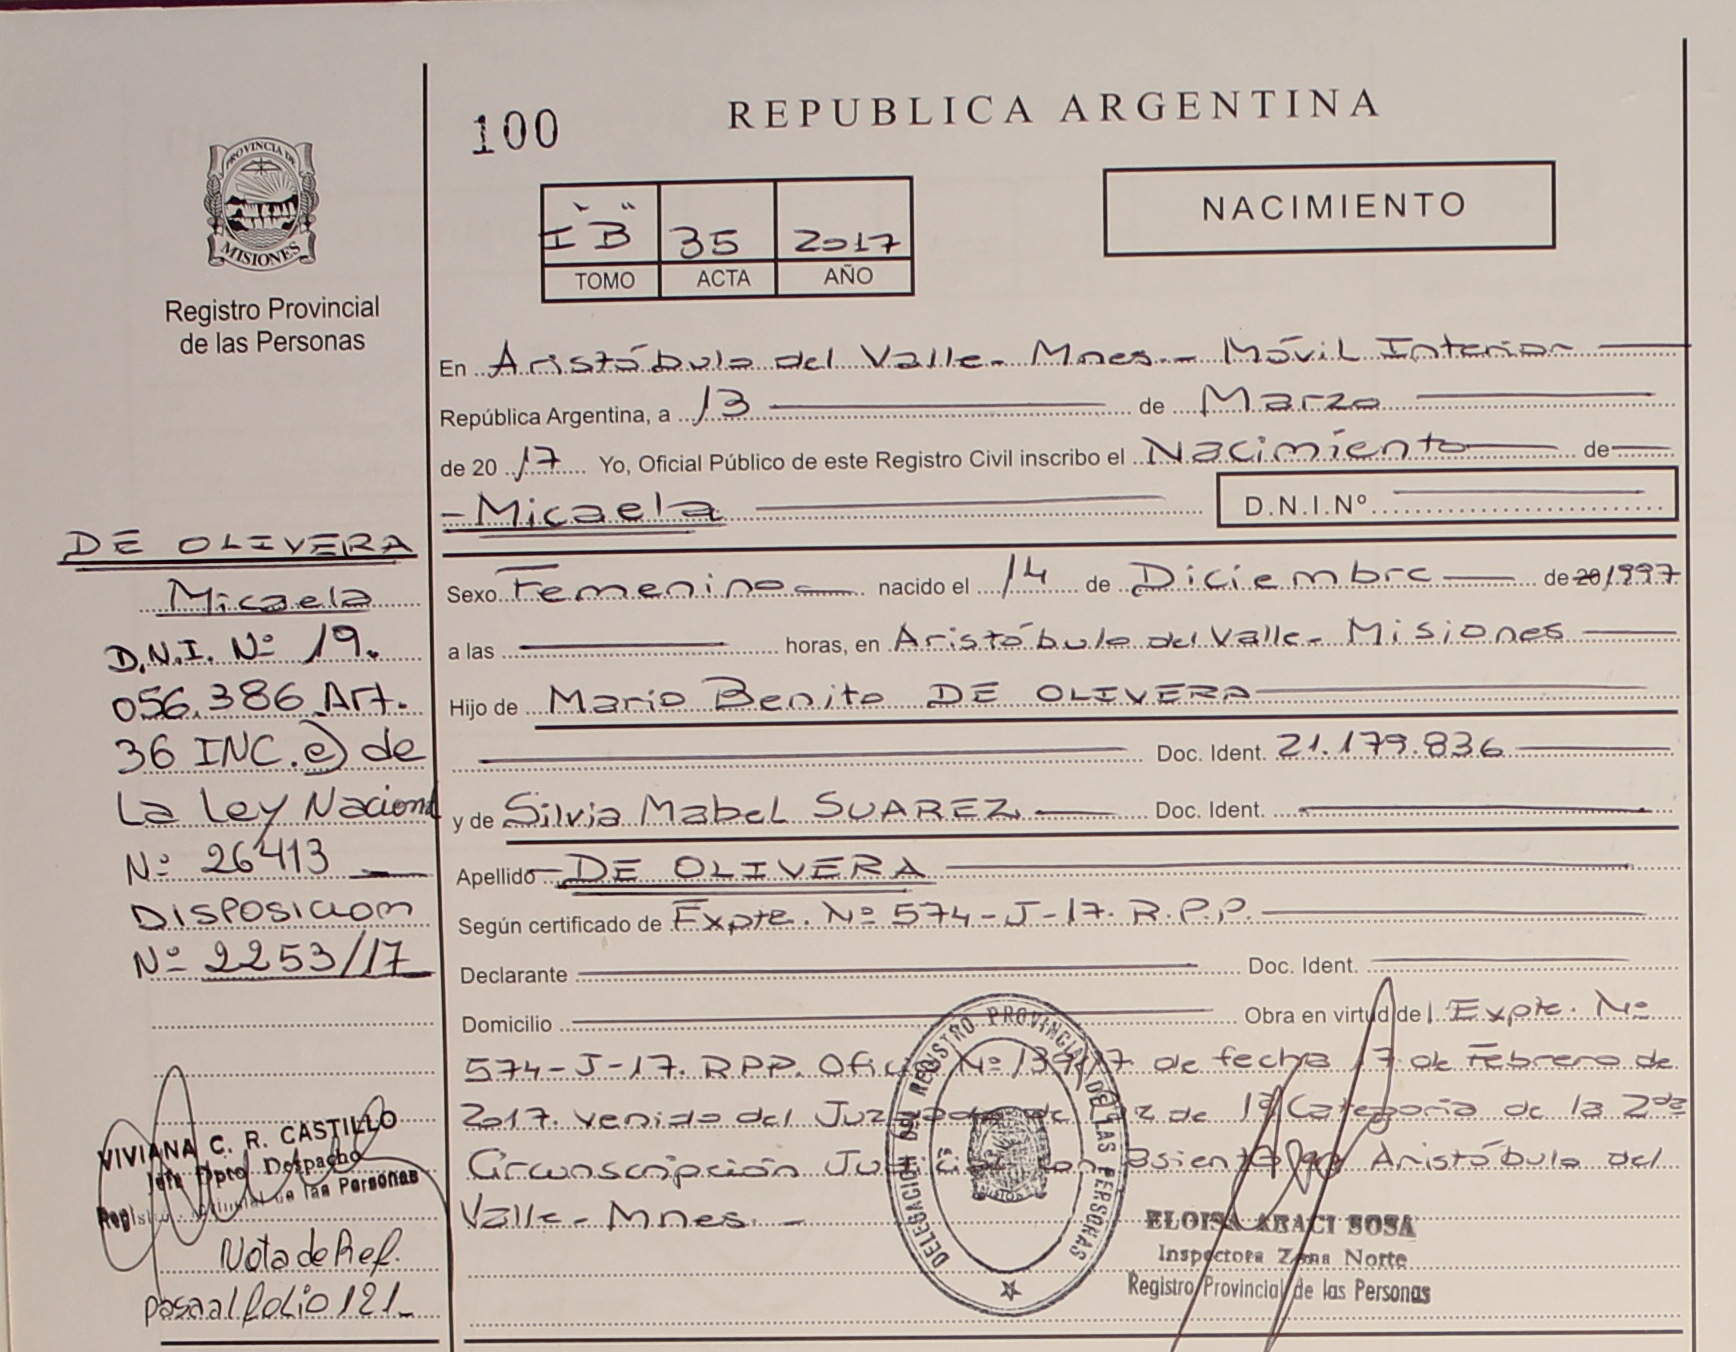 100
REPUBLICA ARGENTINA
PROVINCIA DE
MISIONES
Registro Provincial
de las Personas
I "B" 35 2017
TOMO ACTA AÑO
NACIMIENTO
En Aristóbulo del Valle - Mnes. - Móvil Interior
República Argentina, a 13 de Marzo
de 20 17 Yo, Oficial Público de este Registro Civil inscribo el Nacimiento de
- Micaela D.N.I.Nº
Sexo Femenino nacido el 14 de Diciembre de 20 1997
a las horas, en Aristóbulo del Valle - Misiones
Hijo de Mario Benito DE OLIVERA
Doc. Ident. 21.179.836
y de Silvia Mabel SUAREZ Doc. Ident.
Apellido DE OLIVERA
Según certificado de Expte. Nº 574-J-17. R.P.P.
Declarante Doc. Ident.
Domicilio Obra en virtud del Expte. Nº
574-J-17. RPP. Oficio Nº de fecha 17 de Febrero de
2017. venido del Juzgado de Paz de 1ª Categoria de la 2da
Circunscripción Judicial con asiento en Aristóbulo del
Valle - Mnes. -
DE OLIVERA
Micaela
D.N.I. Nº 19.
056.386 Art.
36 INC. e) de
La Ley Nacional
Nº 26413
DISPOSICION
Nº 2253/17
VIVIANA C. R. CASTILLO
Jefe Dpto Despacho
Registro Provincial de las Personas
Nota de Ref.
pasa al folio 121-
DELEGACION DEL REGISTRO PROVINCIAL DE LAS PERSONAS
ELOISA ARACI SOSA
Inspectora Zona Norte
Registro Provincial de las Personas